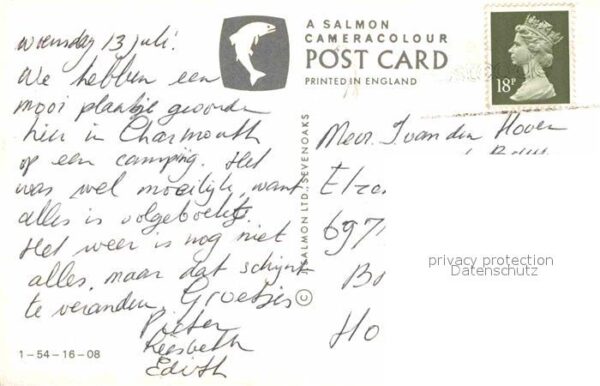 woensdag 13 juli.
We hebben een
mooi plaatsje gevonden
hier in Charmouth
op een camping. Het
was wel moeilijk, want
alles is volgeboekt.
Het weer is nog niet
alles, maar dat schijnt
te veranderen. Groetjes
Pieter
Liesbeth
Edith
1-54-16-08
A SALMON
CAMERACOLOUR
POST CARD
PRINTED IN ENGLAND
© SALMON LTD., SEVENOAKS
18P
Mevr. J van den Hoven
697
Bo
Ho
privacy protection
Datenschutz